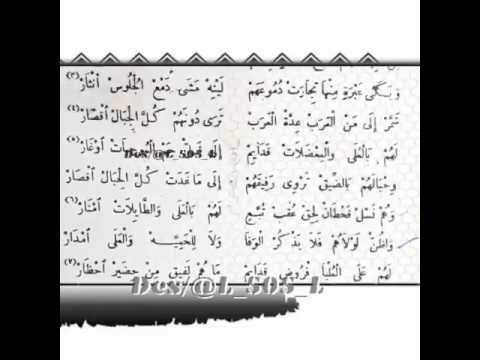 عَبْرَةٍ مِنْهَا تِجَارَتْ دُمُوعَهُمْ لَيْنِهْ مَشَى دَمْعَ الْجُلُوسْ أَنْثَارْ (٣)
إِلَى مَنْ الْعَرَبْ عِدَّةْ الْعَرَبْ تَرَى دُونَهُمْ كُلَّ الْجِبَالْ أَقْصَارْ (٤)
لَهُمْ بِالْعُلَى وَالْمِعْضِلَاتْ قَدَايِمْ إِلَى أَوْغَارْ (٥)
وِحْبَالَهُمْ بِالضِّيقْ تَرْوِي رَفِيقَهُمْ إِلَى مَا غَدَتْ كُلَّ الْحِبَالْ أَقْصَارْ
وِهُمْ نَسْلْ قَحْطَانْ لِحِقْ عُقْبْ تُبَّعْ لَهُمْ بِالْعُلَى وَالطَّايِلَاتْ أَمْنَارْ (٦)
وَاظُنّْ لَوْلَاهُمْ فَلَا يِذْكَرْ الْوَفَا وَلَا وَالْعُلَى أَمْدَارْ
لَهُمْ عَلَى الْعُلْيَا فُرُوضٍ قَدَايِمْ مَا هُمْ لَفِيقٍ مِنْ حَضِيرْ أَحْظَارْ (٧)
Des/@L_505_L